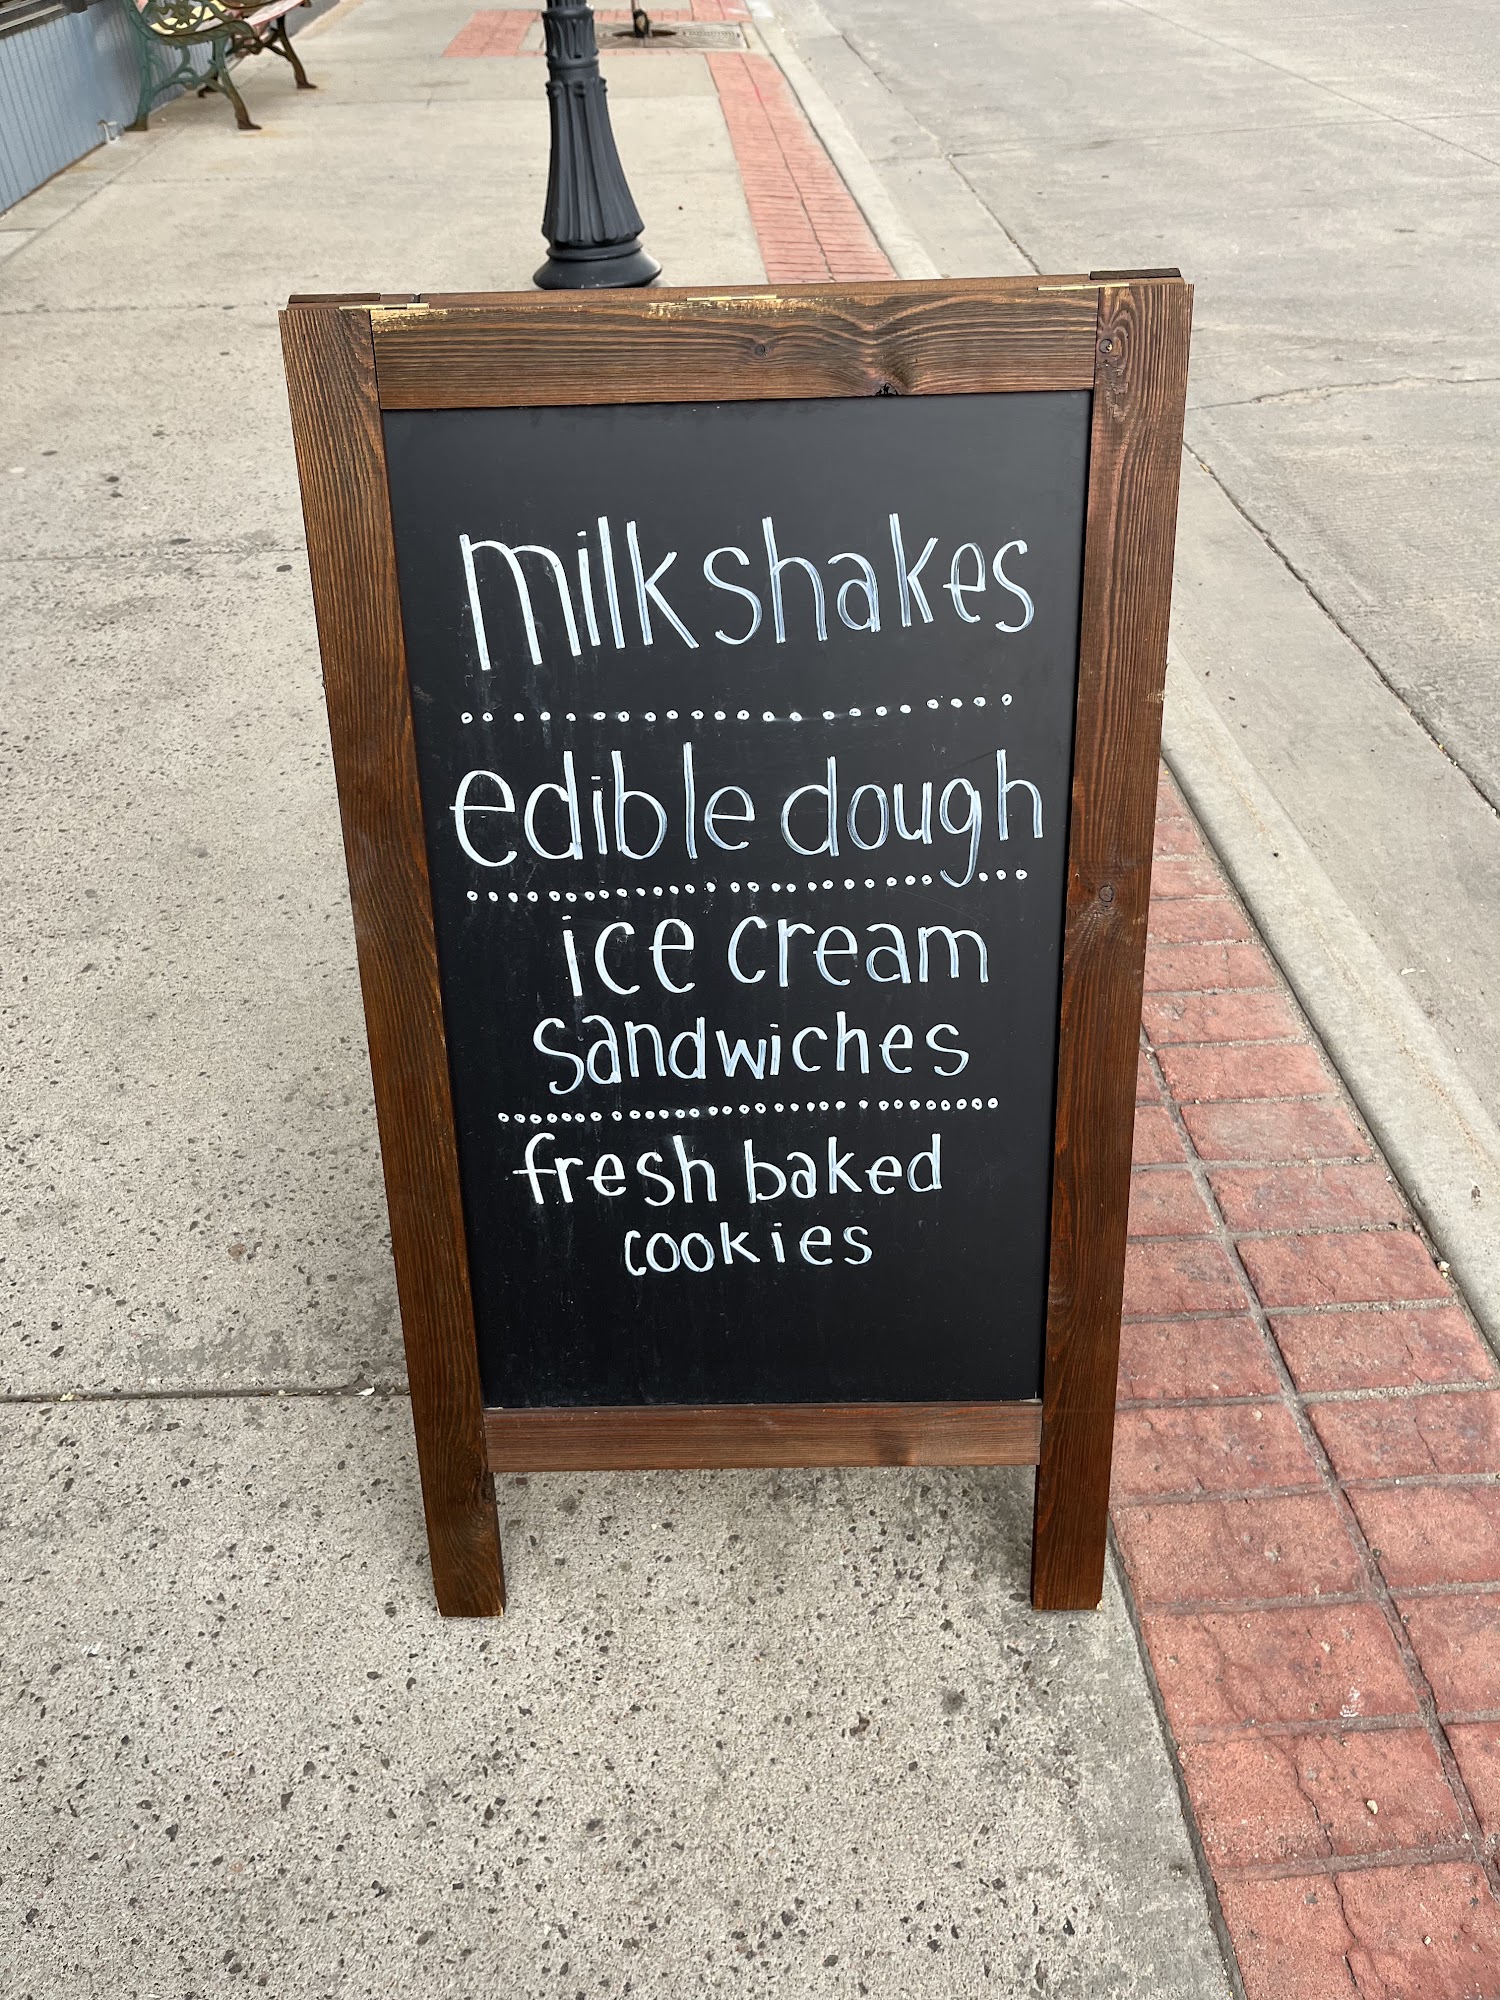 milkshakes
edible dough
ice cream
sandwiches
fresh baked
cookies